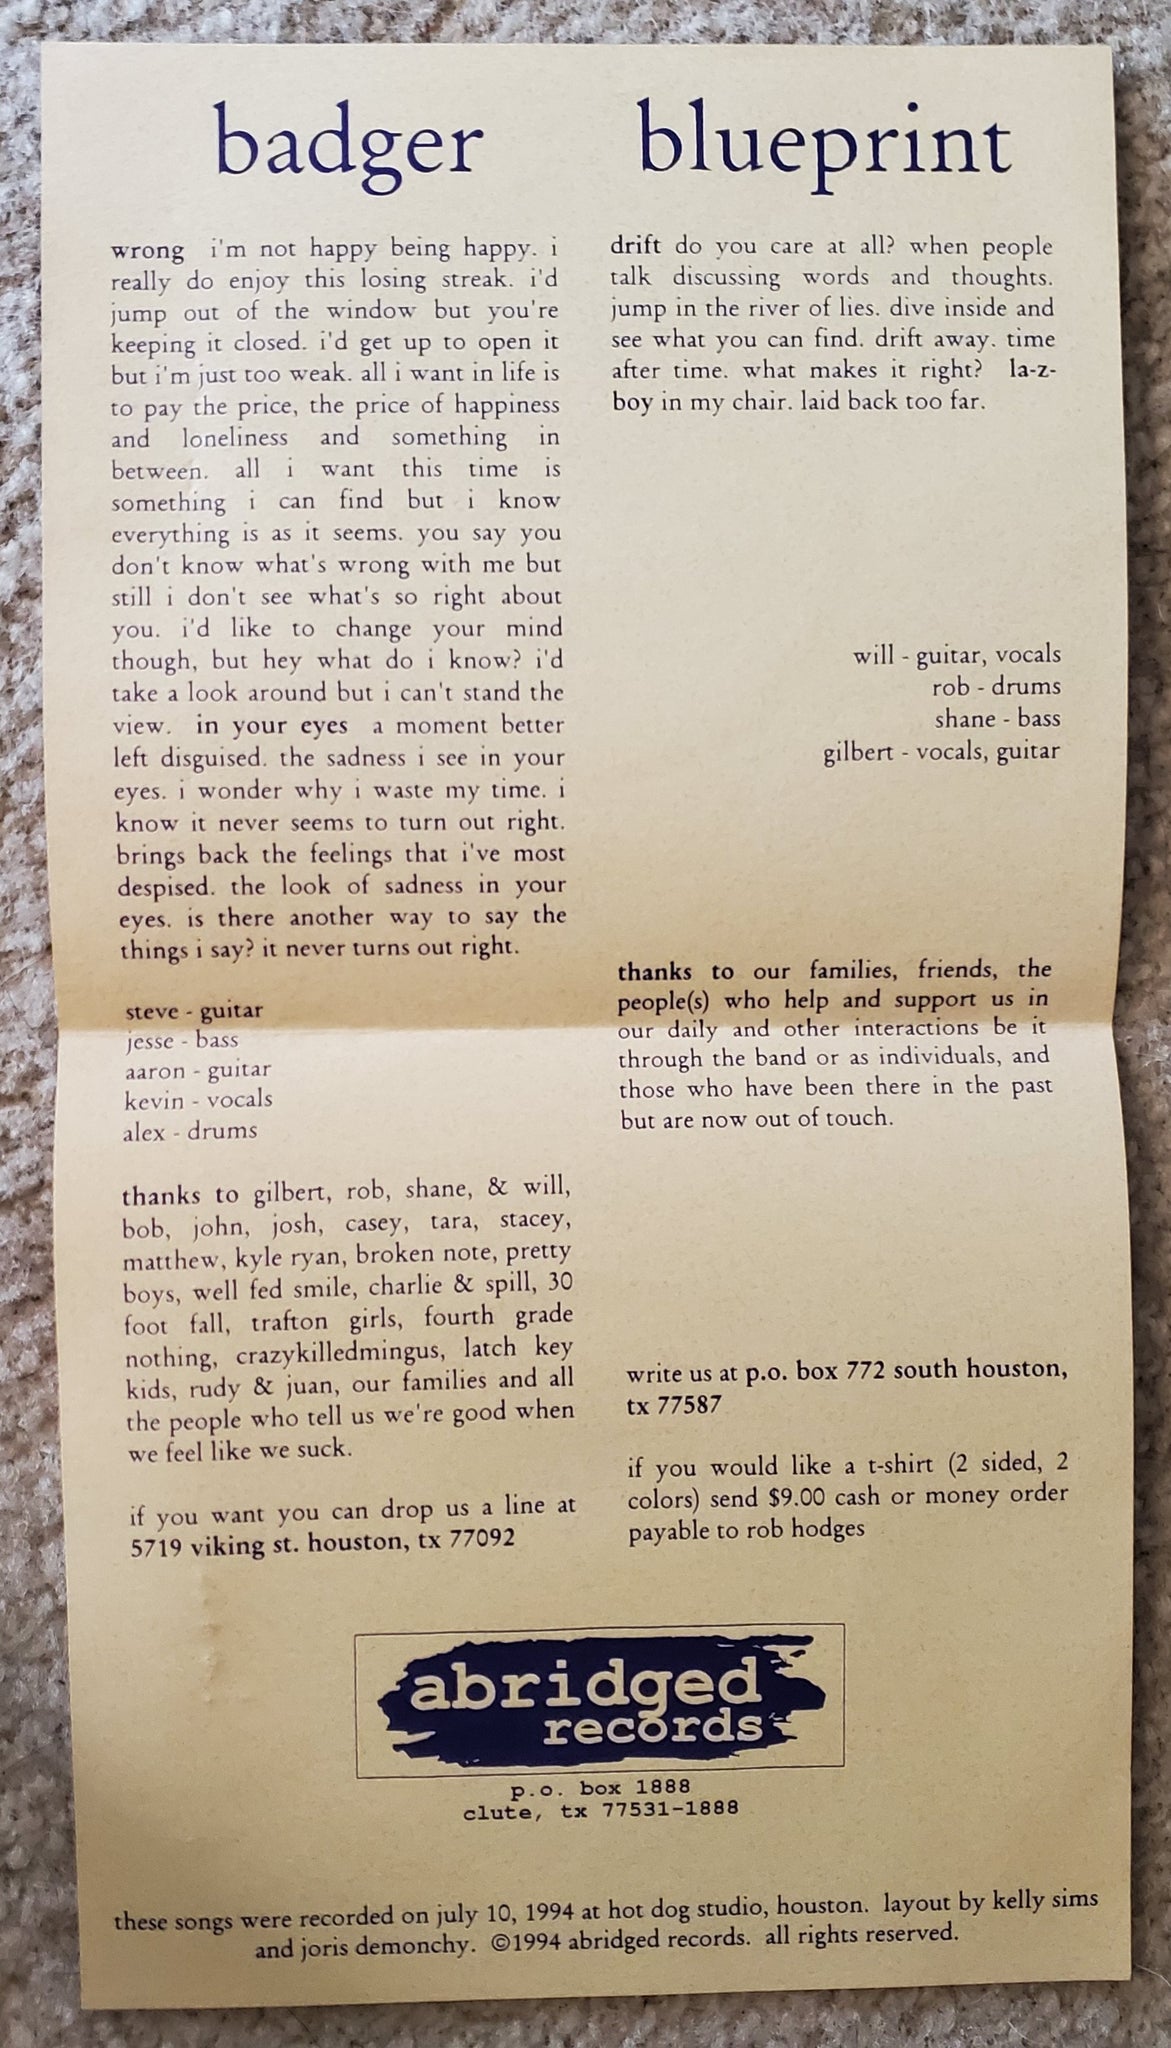 badger
wrong i'm not happy being happy. i
really do enjoy this losing streak. i'd
jump out of the window but you're
keeping it closed. i'd get up to open it
but i'm just too weak. all i want in life is
to pay the price, the price of happiness
and loneliness and something in
between. all i want this time is
something i can find but i know
everything is as it seems. you say you
don't know what's wrong with me but
still i don't see what's so right about
you. i'd like to change your mind
though, but hey what do i know? i'd
take a look around but i can't stand the
view. in your eyes a moment better
left disguised. the sadness i see in your
eyes. i wonder why i waste my time. i
know it never seems to turn out right.
brings back the feelings that i've most
despised. the look of sadness in your
eyes. is there another way to say the
things i say? it never turns out right.
steve - guitar
jesse - bass
aaron - guitar
kevin - vocals
alex - drums
thanks to gilbert, rob, shane, & will,
bob, john, josh, casey, tara, stacey,
matthew, kyle ryan, broken note, pretty
boys, well fed smile, charlie & spill, 30
foot fall, trafton girls, fourth grade
nothing, crazykilledmingus, latch key
kids, rudy & juan, our families and all
the people who tell us we're good when
we feel like we suck.
if you want you can drop us a line at
5719 viking st. houston, tx 77092
blueprint
drift do you care at all? when people
talk discussing words and thoughts.
jump in the river of lies. dive inside and
see what you can find. drift away. time
after time. what makes it right? la-z-
boy in my chair. laid back too far.
will - guitar, vocals
rob - drums
shane - bass
gilbert - vocals, guitar
thanks to our families, friends, the
people(s) who help and support us in
our daily and other interactions be it
through the band or as individuals, and
those who have been there in the past
but are now out of touch.
write us at p.o. box 772 south houston,
tx 77587
if you would like a t-shirt (2 sided, 2
colors) send $9.00 cash or money order
payable to rob hodges
abridged
records
p.o. box 1888
clute, tx 77531-1888
these songs were recorded on july 10, 1994 at hot dog studio, houston. layout by kelly sims
and joris demonchy. ©1994 abridged records. all rights reserved.